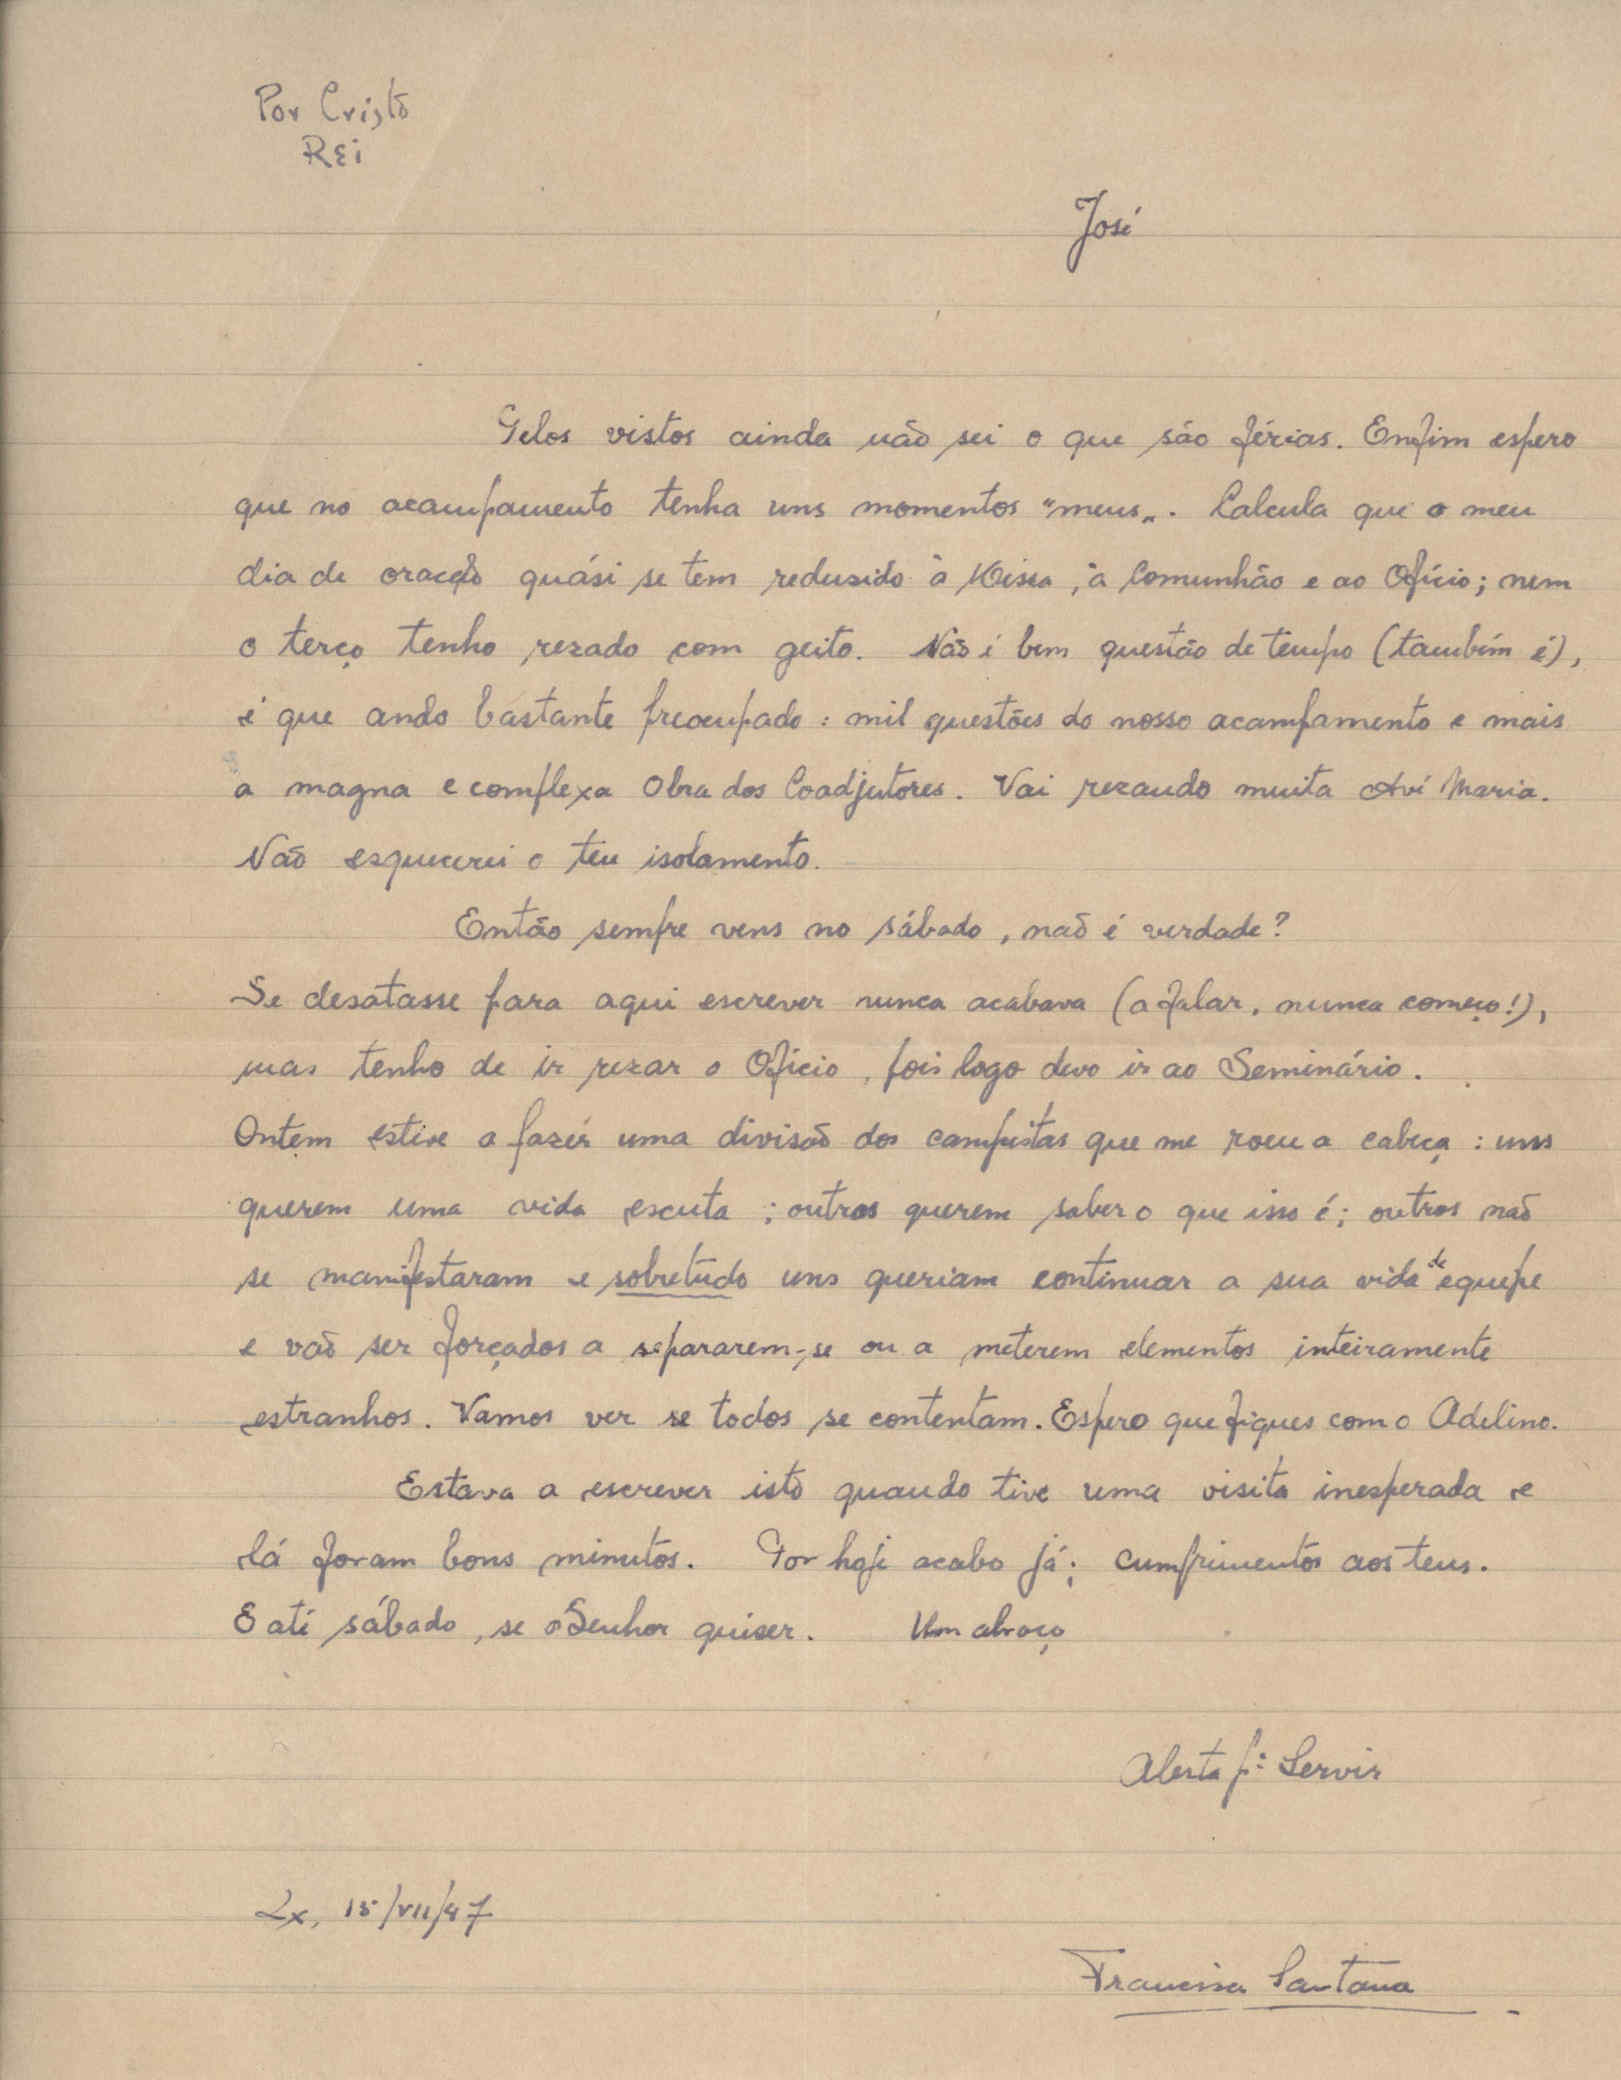 Por Cristo
Rei
José
Pelos vistos ainda não sei o que são férias. Enfim espero
que no acampamento tenha uns momentos "meus„. Calcula que o meu
dia de oração quási se tem reduzido à Missa, à Comunhão e ao Ofício; nem
o terço tenho rezado com geito. Não é bem questão de tempo (também é),
é que ando bastante preocupado: mil questões do nosso acampamento e mais
a magna e complexa Obra dos Coadjutores. Vai rezando muita Avé Maria.
Não esquecerei o teu isolamento.
Então sempre vens no sábado, não é verdade?
Se desatasse para aqui escrever nunca acabava (a falar, nunca começo!),
mas tenho de ir rezar o Ofício, pois logo devo ir ao Seminário.
Ontem estive a fazer uma divisão dos campistas que me roeu a cabeça: uns
querem uma vida escuta; outros querem saber o que isso é; outros não
se manifestaram e sobretudo uns queriam continuar a sua vida de equipe
e vão ser forçados a separarem-se ou a meterem elementos inteiramente
estranhos. Vamos ver se todos se contentam. Espero que fiques com o Adelino.
Estava a escrever isto quando tive uma visita inesperada e
lá foram bons minutos. Por hoje acabo já; cumprimentos aos teus.
E até sábado, se o Senhor quiser. Um abraço
Alerta pª Servir
Lx, 15/VII/47
Santana